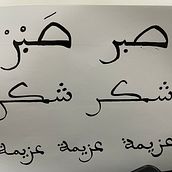 صبر صَبْرٌ
شكر شكر
عزيمة عزيمة عزيمة